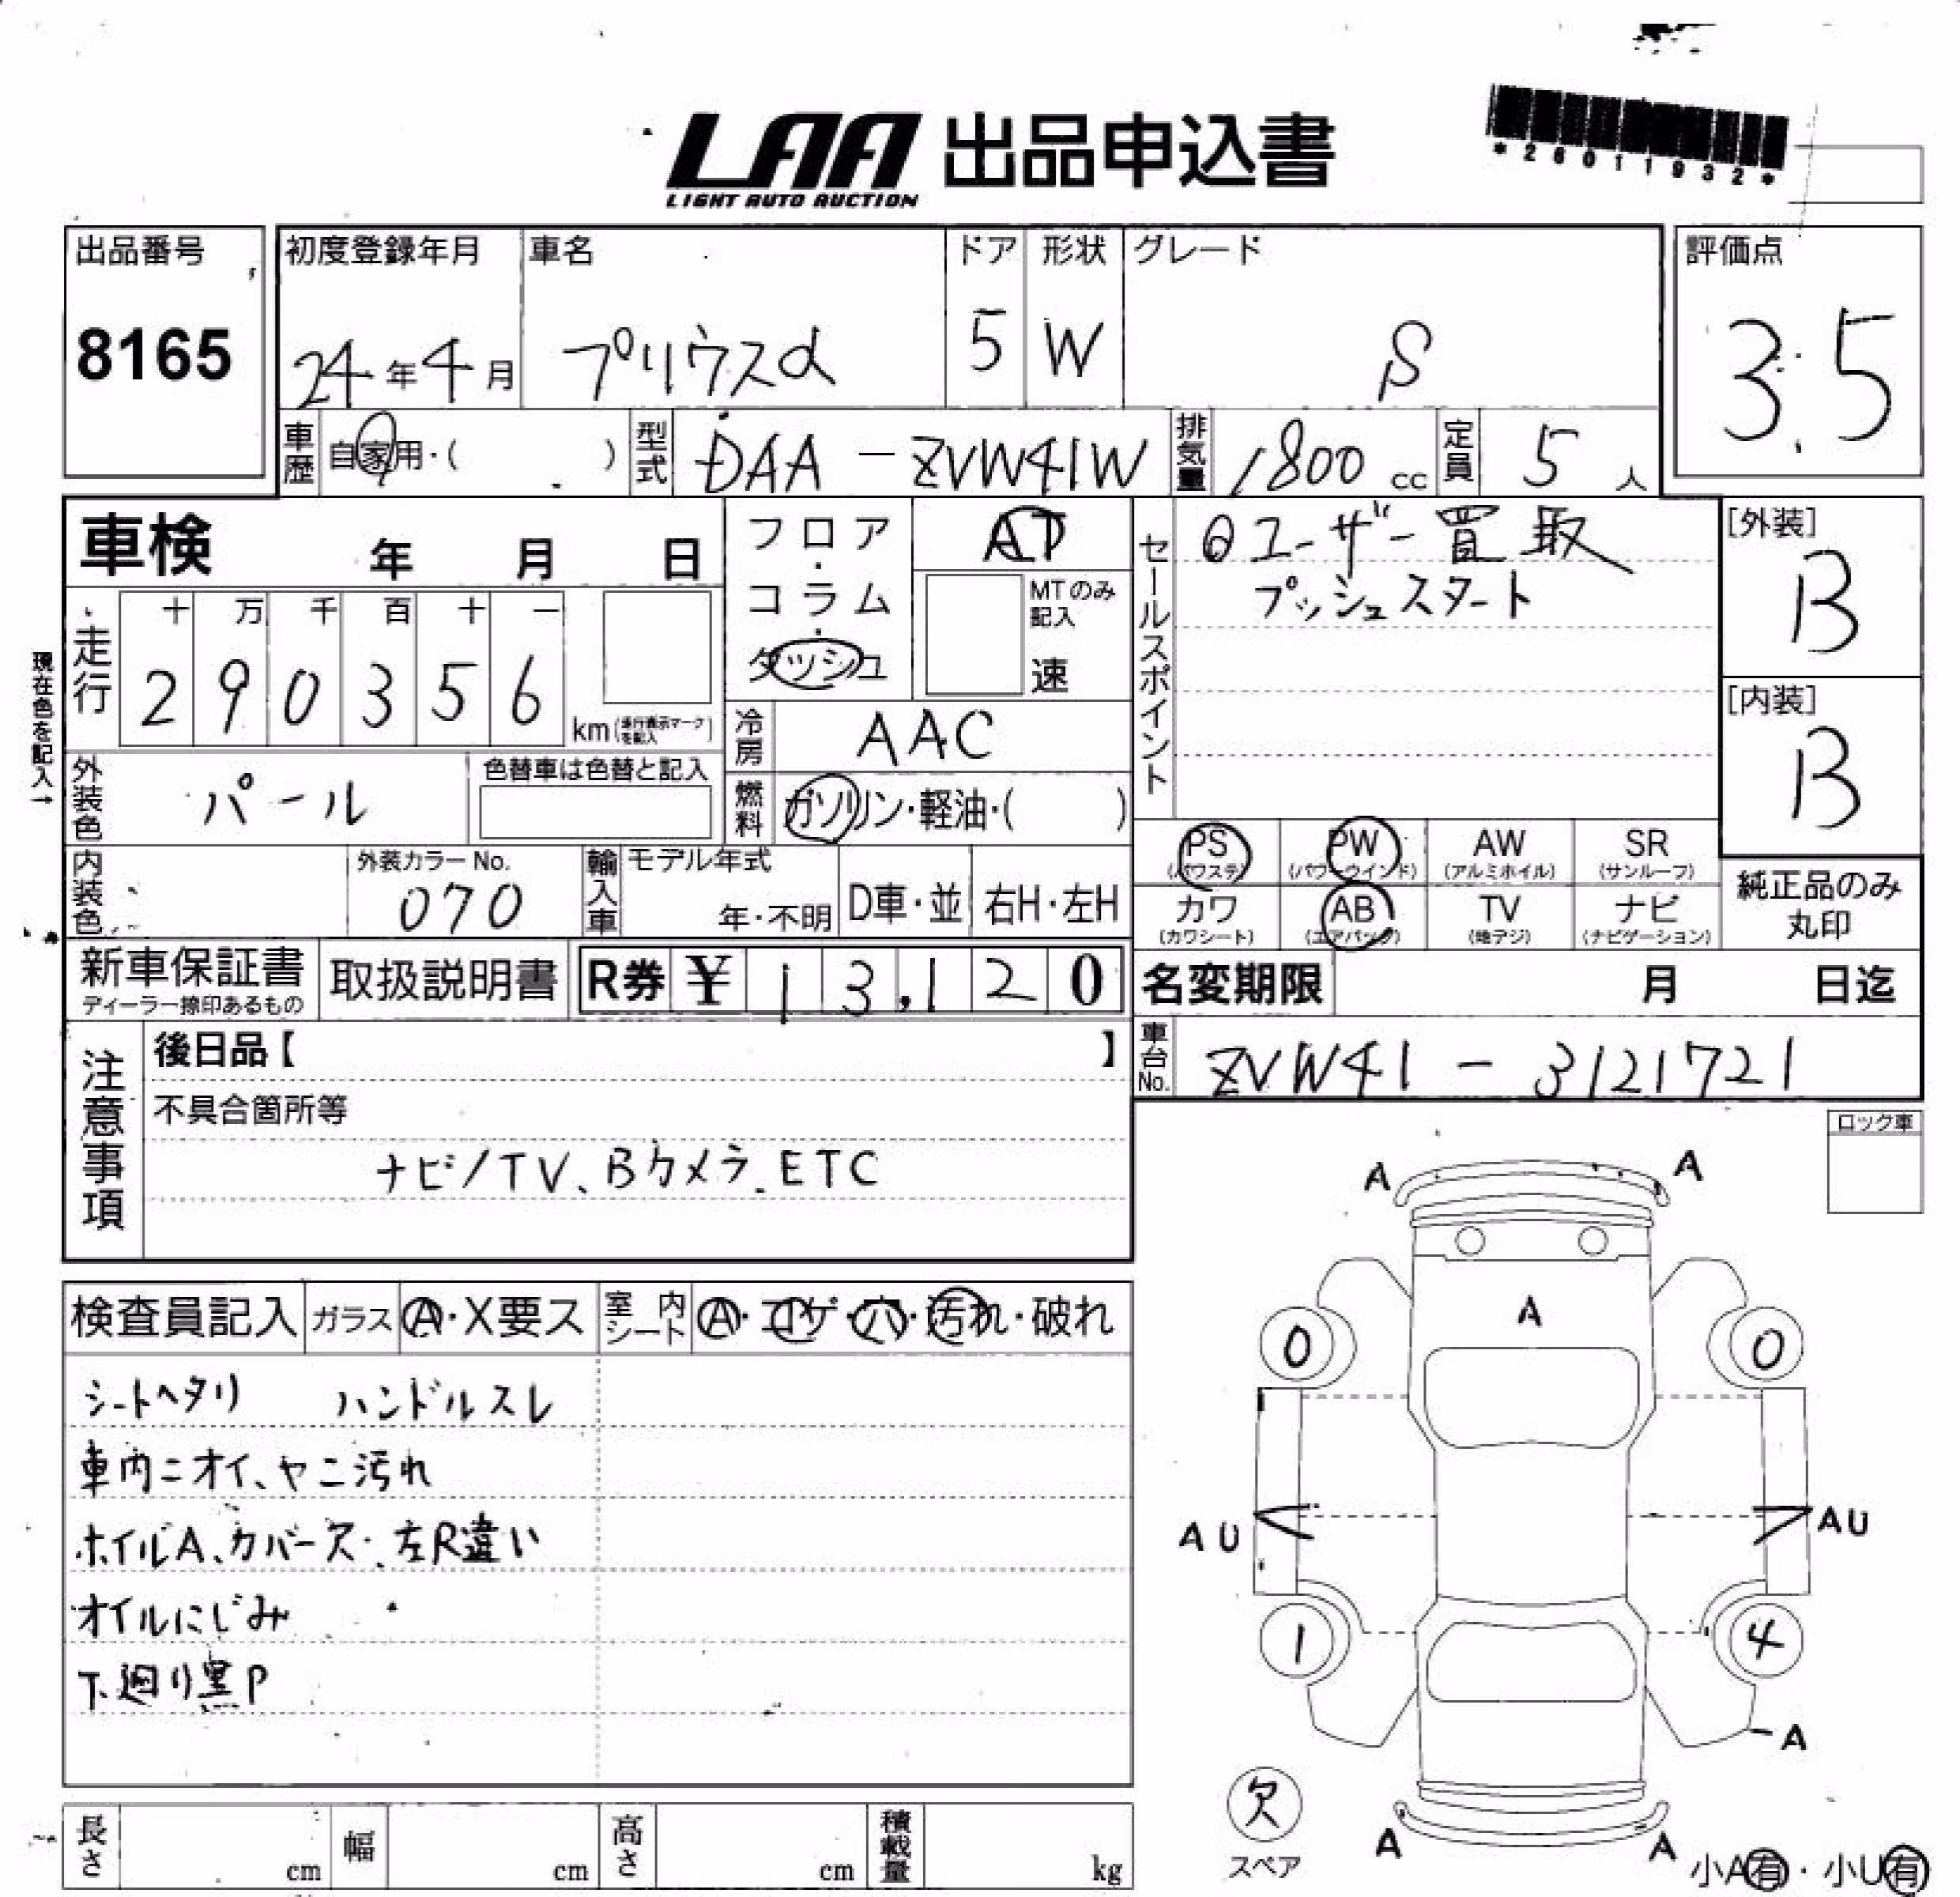 LAA 出品申込書
LIGHT AUTO AUCTION
*26011932*
出品番号
8165
初度登録年月
24年4月
車名
プリウスα
ドア
5
形状
W
グレード
S
評価点
3.5
車歴
自家用・( )
型式
DAA-ZVW41W
排気量
1800 cc
定員
5 人
車検 年 月 日
フロア・コラム・ダッシュ
AT
MTのみ記入
速
セールスポイント
ユーザー買取
プッシュスタート
[外装]
B
[内装]
B
現在色を記入→
走行
十 万 千 百 十 一
2 9 0 3 5 6
km(走行表示マークを記入)
冷房
AAC
外装色
パール
色替車は色替と記入
燃料
ガソリン・軽油・( )
PS
(パワステ)
PW
(パワーウインド)
AW
(アルミホイル)
SR
(サンルーフ)
カワ
(カワシート)
AB
(エアバッグ)
TV
(地デジ)
ナビ
(ナビゲーション)
純正品のみ
丸印
内装色
外装カラーNo.
070
輸入車
モデル年式
年・不明
D車・並
右H・左H
新車保証書
ディーラー捺印あるもの
取扱説明書
R券 ¥ 13,120
名変期限 月 日迄
注意事項
後日品【 】
不具合箇所等
ナビ/TV、Bカメラ、ETC
車台No.
ZVW41-3121721
ロック車
検査員記入
ガラス
A・X要ス
室内シート
A・コゲ・穴・汚れ・破れ
シートヘタリ ハンドルスレ
車内ニオイ、ヤニ汚れ
ホイルA、カバー欠、左R違い
オイルにじみ
下廻り黒P
A A
A
0 0
AU AU
1 4
A
欠
スペア
A A
小A有・小U有
長さ cm
幅 cm
高さ cm
積載量 kg